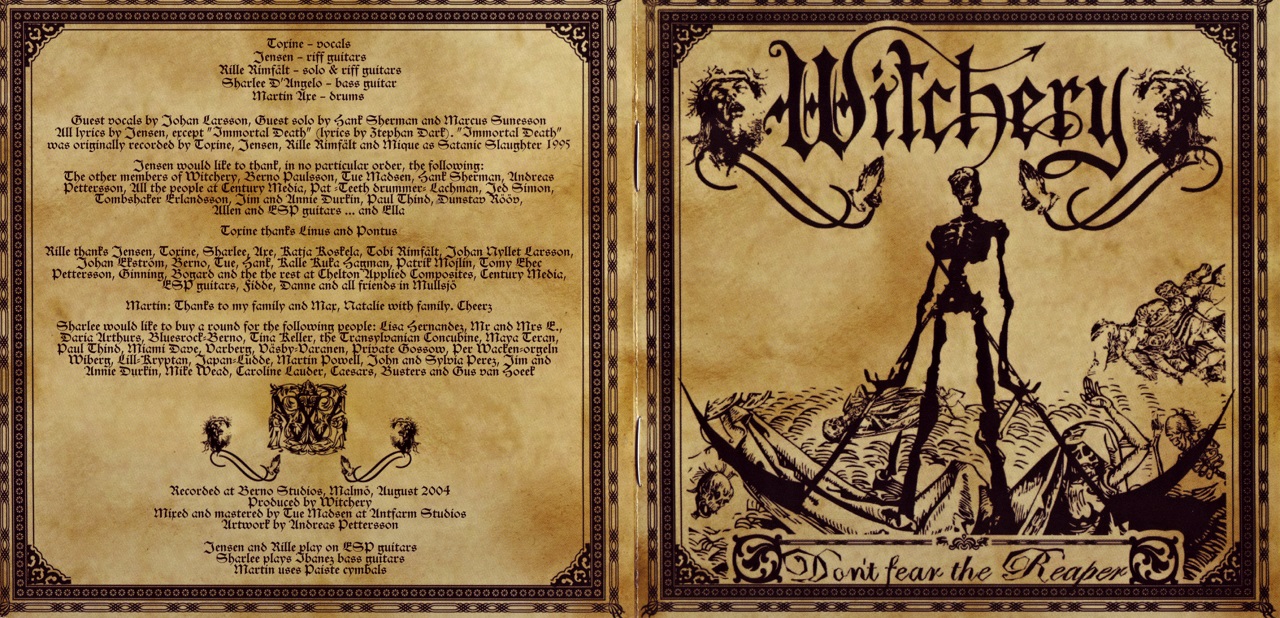 Toxine - vocals
Jensen - riff guitars
Rille Rimfält - solo & riff guitars
Sharlee D'Angelo - bass guitar
Martin Axe - drums
Guest vocals by Johan Larsson, Guest solo by Hank Sherman and Marcus Sunesson
All lyrics by Jensen, except "Immortal Death" (lyrics by Ztephan Dark). "Immortal Death"
was originally recorded by Toxine, Jensen, Rille Rimfält and Mique as Satanic Slaughter 1995
Jensen would like to thank, in no particular order, the following:
The other members of Witchery, Berno Paulsson, Tue Madsen, Hank Sherman, Andreas
Pettersson, All the people at Century Media, Pat-Teeth drummer- Lachman, Jed Simon,
Tombshaker Erlandsson, Jim and Annie Durkin, Paul Thind, Dunstav Rööv,
Allen and ESP guitars ... and Ella
Toxine thanks Linus and Pontus
Rille thanks Jensen, Toxine, Sharlee, Axe, Katja Koskela, Tobi Rimfält, Johan Nyllet Larsson,
Johan Ekström, Berno, Tue, Hank, Kalle Kuka Hagman, Patrik Mojlin, Tomy Ehec
Pettersson, Ginning, Bogard and the the rest at Chelton Applied Composites, Century Media,
ESP guitars, Fidde, Danne and all friends in Mullsjö
Martin: Thanks to my family and Max, Natalie with family. Cheerz
Sharlee would like to buy a round for the following people: Lisa Hernandez, Mr and Mrs E.,
Daria Arthurs, Bluesrock-Berno, Tina Keller, the Transylvanian Concubine, Maya Teran,
Paul Thind, Miami Dave, Varberg, Väsby-Varanen, Private Gossow, Per Wacken-orgeln
Wiberg, Lill-Kryptan, Japan-Ludde, Martin Powell, John and Sylvia Perez, Jim and
Annie Durkin, Mike Wead, Caroline Lauder, Caesars, Busters and Gus van Hoeek
Recorded at Berno Studios, Malmö, August 2004
Produced by Witchery
Mixed and mastered by Tue Madsen at Antfarm Studios
Artwork by Andreas Pettersson
Jensen and Rille play on ESP guitars
Sharlee plays Ibanez bass guitars
Martin uses Paiste cymbals
Witchery
Don't fear the Reaper